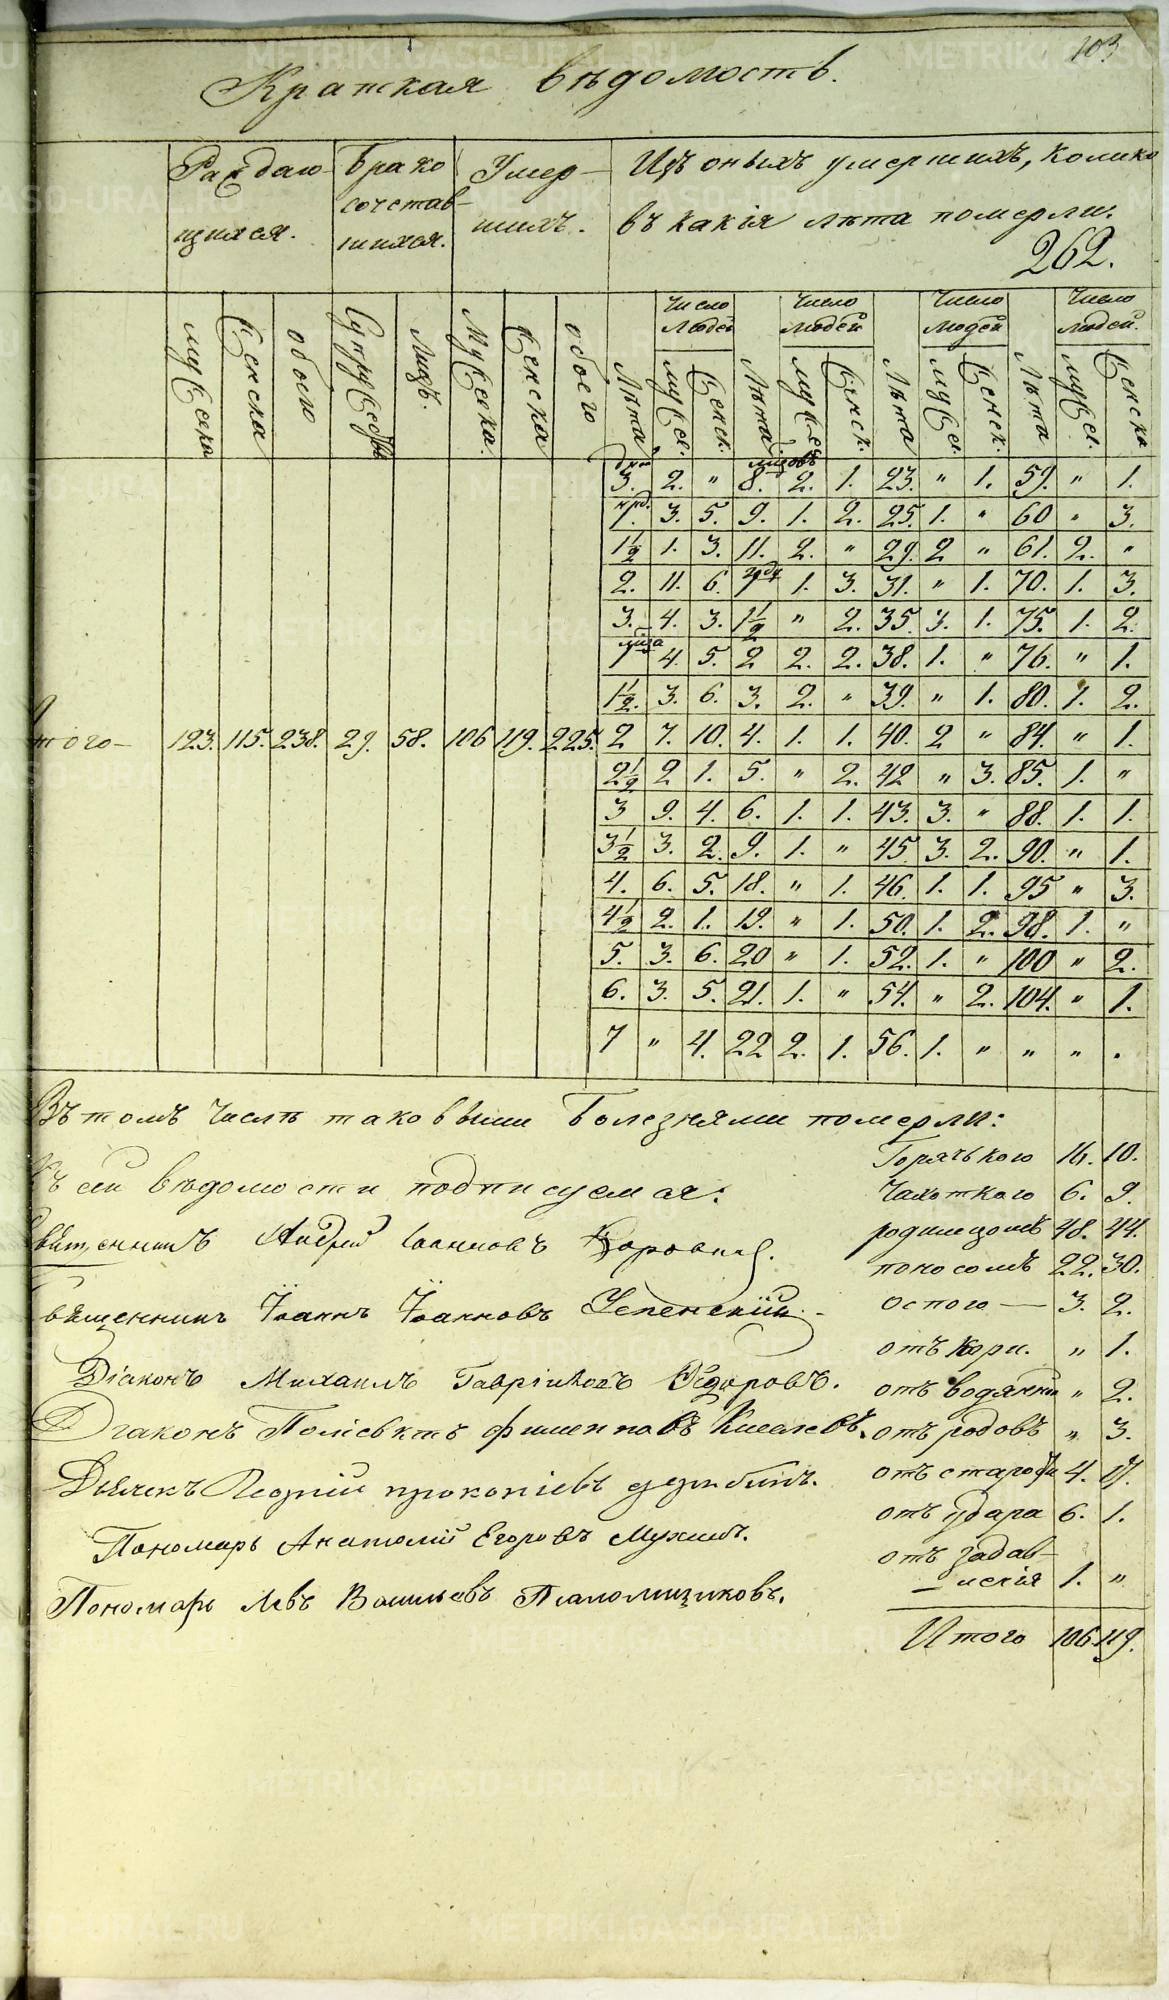 103
Краткая вѣдомость.
Раждаю-
щихся.
Брако
сочетав-
шихся.
Умер-
шихъ.
Изъ оныхъ умершихъ, колико
въ какія лѣта померли.
262.
Число людей
Число людей
Число людей
Число людей.
мужеска
Женска
обоего
Супружествъ
Лицъ.
Мужеска.
Женска
обоего
Лѣта
мужес.
Женск.
Лѣта
мужес.
Женск.
Лѣта
мужес.
Женск.
Лѣта
мужес.
Женска
дней мѣсяцовъ
3. 2. „ 8. 2. 1. 23. „ 1. 59. „ 1.
нед.
1. 3. 5. 9. 1. 2. 25. 1. „ 60 „ 3.
1½ 1. 3. 11. 2. „ 29. 2 „ 61. 2. „
года
2. 11. 6. 1 1. 3. 31. „ 1. 70. 1. 3.
3. 4. 3. 1½ „ 2. 35. 3. 1. 75. 1. 2.
1 4. 5. 2 2. 2. 38. 1. „ 76. „ 1.
1½. 3. 6. 3. 2. „ 39. „ 1. 80. 1. 2.
Итого — 123. 115. 238. 29. 58. 106 119. 225. 2 7. 10. 4. 1. 1. 40. 2 „ 84. „ 1.
2½ 2 1. 5. „ 2. 42 „ 3. 85. 1. „
3 9. 4. 6. 1. 1. 43. 3. „ 88. 1. 1.
3½ 3. 2. 9. 1. „ 45 3. 2. 90. „ 1.
4. 6. 5. 18. „ 1. 46. 1. 1. 95 „ 3.
4½ 2. 1. 19. „ 1. 50. 1. 2. 98. 1. „
5. 3. 6. 20 „ 1. 52. 1. „ 100 „ 2.
6. 3. 5. 21. 1. „ 54. „ 2. 104. „ 1.
7 „ 4. 22 2. 1. 56. 1. „ „ „ .
Въ томъ числѣ таковыми болезнями померли:
Горячькою 16. 10.
Чахоткою 6. 9.
родимцомъ 48. 44.
поносомъ 22. 30.
оспою — 3. 2.
отъ кори. „ 1.
отъ водянки „ 2.
отъ родовъ „ 3.
отъ старости 4. 17.
отъ удара 6. 1.
отъ задав-
— 1. „
Итого 106. 119.
Къ сей вѣдомости подписуемся:
Священникъ Андрей Іоанновъ
Священникъ Іоаннъ Іоанновъ Успенскій. -
Діаконъ Михаилъ Гавріиловъ Ѳедоровъ.
Діаконъ Киселевъ.
Дьячекъ Георгій прокопіевъ
Пономарь Анатолій Егоровъ Мухинъ.
Пономарь Левъ Васильевъ
METRIKI.GASO-URAL.RU